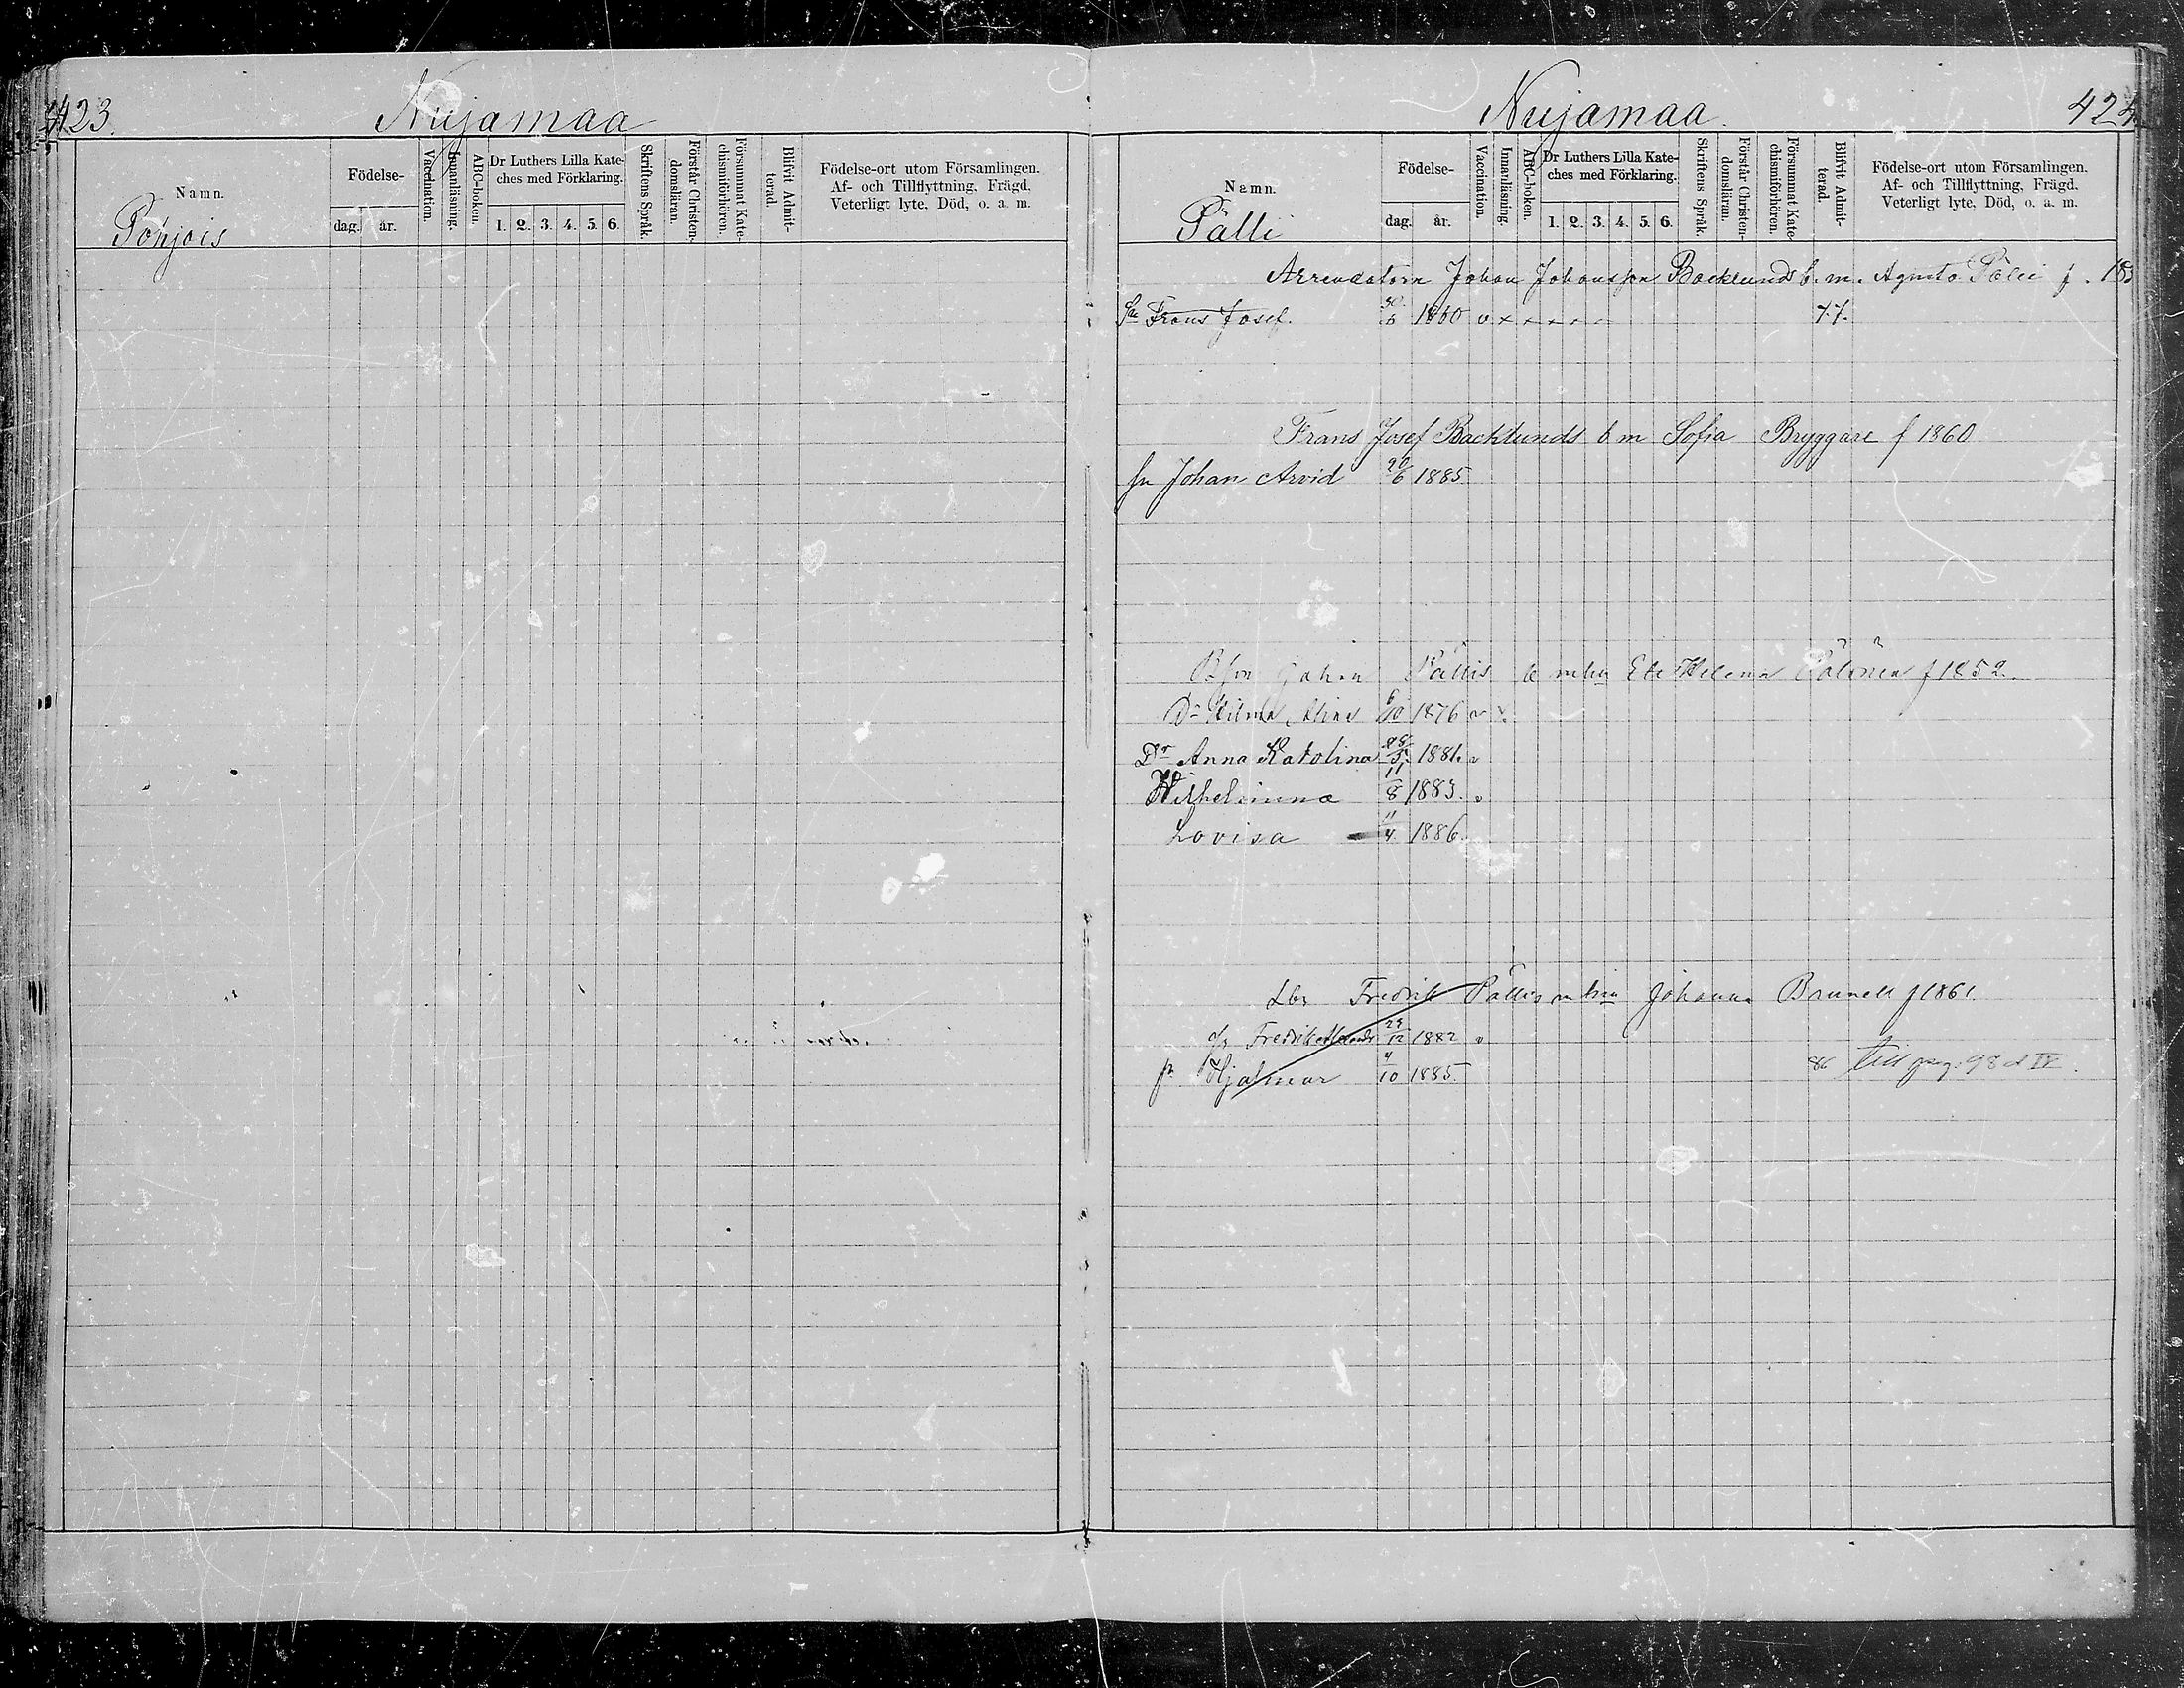 423.
Nujamaa
Namn.
Pohjois
Födelse-
dag. år.
Vaccination.
Innanläsning.
ABC-boken.
Dr Luthers Lilla Kate-
ches med Förklaring.
1. 2. 3. 4. 5. 6.
Skriftens Språk.
Förstår Christen-
domsläran.
Försummat Kate-
chismiförhören.
Blifvit Admit-
terad.
Födelse-ort utom Församlingen.
Af- och Tillflyttning, Frägd,
Veterligt lyte, Död, o. a. m.
Nujamaa.
424
Namn.
Pälli
Födelse-
dag. år.
Vaccination.
Innanläsning.
ABC-boken.
Dr Luthers Lilla Kate-
ches med Förklaring.
1. 2. 3. 4. 5. 6.
Skriftens Språk.
Förstår Christen-
domsläran.
Försummat Kate-
chismiförhören.
Blifvit Admit-
terad.
Födelse-ort utom Församlingen.
Af- och Tillflyttning, Frägd,
Veterligt lyte, Död, o. a. m.
Arrendatorn Johan Johansson Backlunds b. m. Agneta f. 18
Sn Frans Josef. 30/6 1860 v x x x x x 77.
Frans Josef Backlunds b m Sofia Bryggare f 1860
sn Johan Arvid 20/6 1885.
Johan Pällis b m hu Helena Pälönen f 1852.
Dr Hilma Alina 6/10 1876 v x
Dr Anna Karolina 28/5 1881. v
Wilhelmina 11/8 1883. v
Lovisa 11/4 1886.
Lbr Fredrik Pällis m hu Johanna Brunell f 1861.
Fredrik 29/12 1882 v
sn Hjalmar 4/10 1885.
86 till pag. 98 d IV.